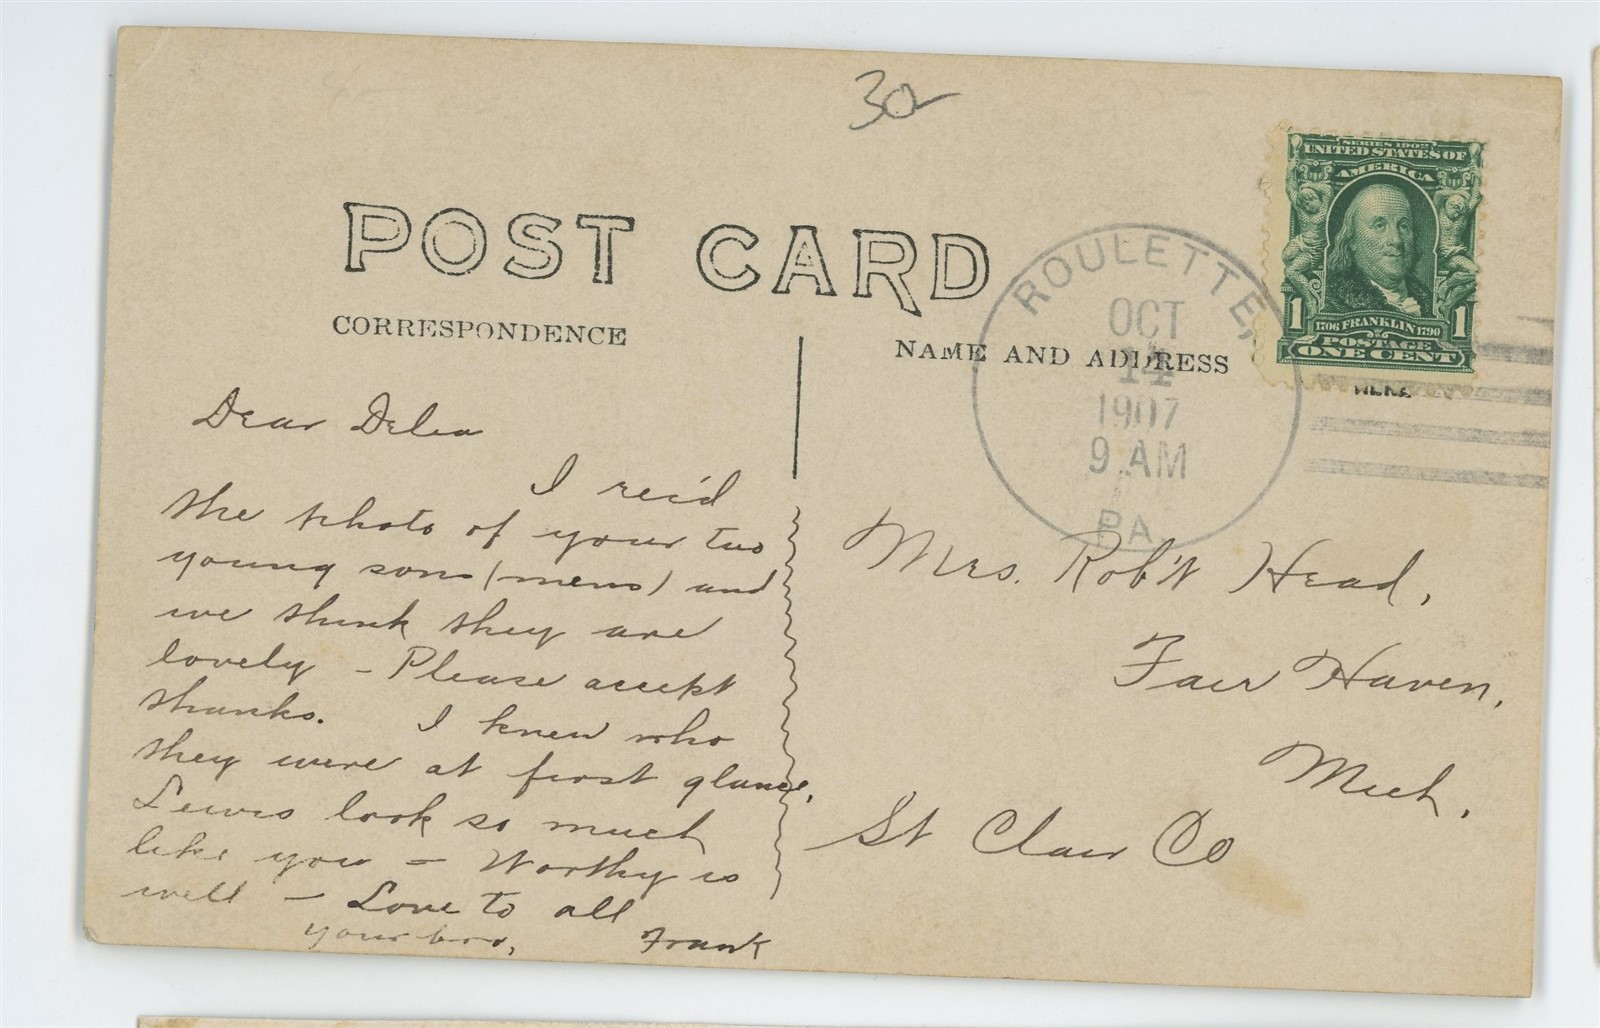 30
POST CARD
CORRESPONDENCE
NAME AND ADDRESS
SERIES 1902
UNITED STATES OF
AMERICA
1 1706 FRANKLIN 1790 1
POSTAGE
ONE CENT
HERE
ROULETTE,
OCT
14
1907
9 AM
PA.
Dear Delia
I rec'd
the photo of your two
young sons (mens) and
we think they are
lovely - Please accept
thanks. I knew who
they were at first glance,
Lewis look so much
like you - Worthy is
well - Love to all
your bro, Frank
Mrs. Rob't Head,
Fair Haven,
Mich.
St Clair Co